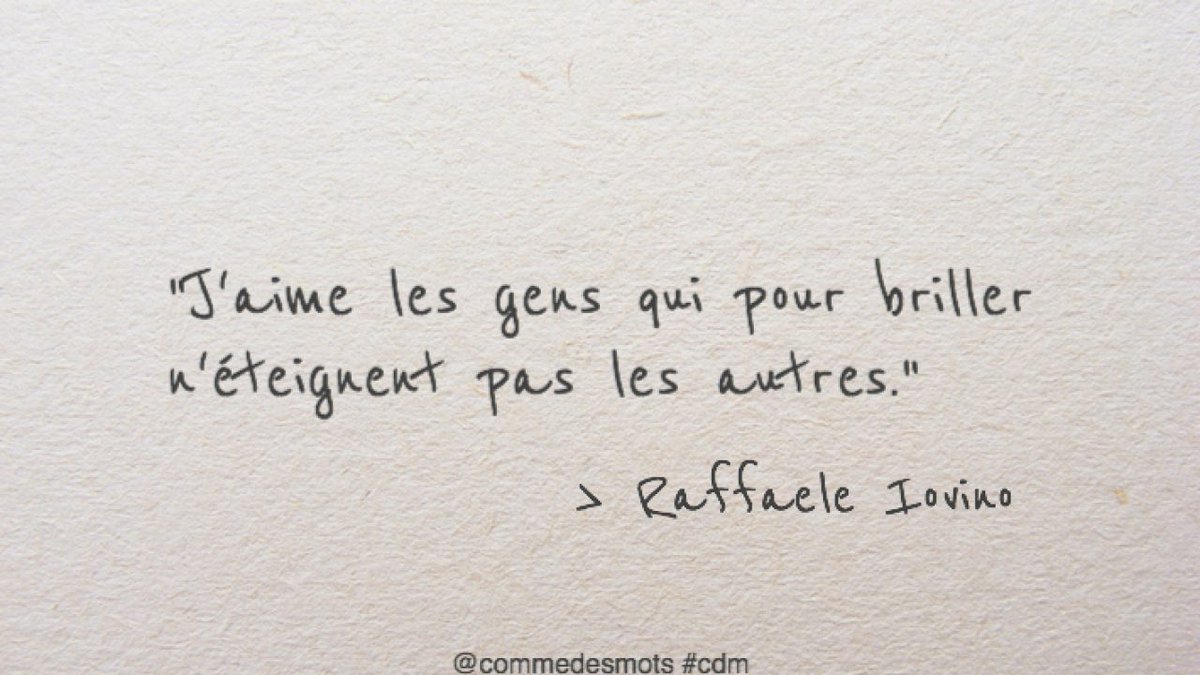 "J'aime les gens qui pour briller
n'éteignent pas les autres."
> Raffaele Iovino
@commedesmots #cdm